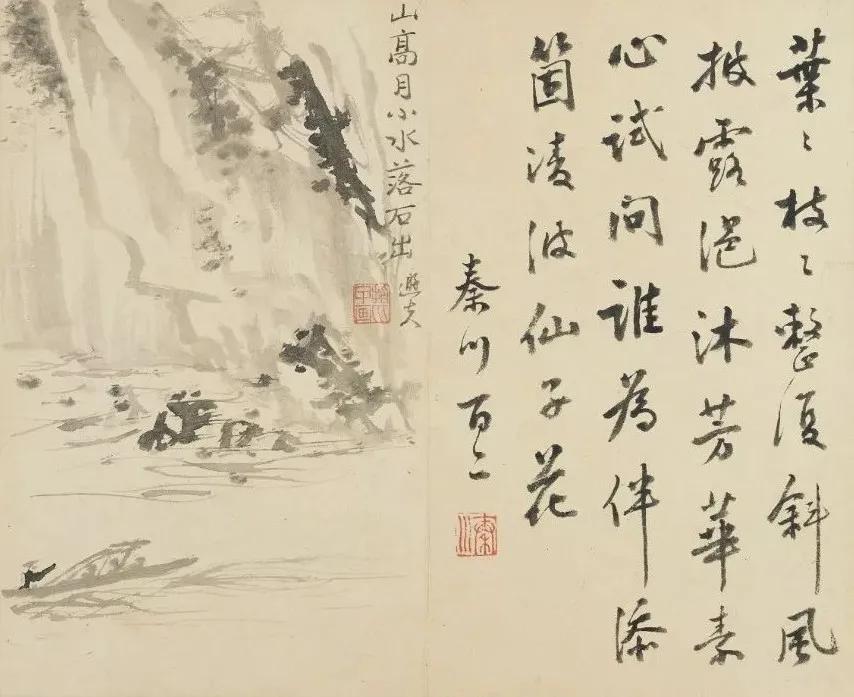 葉〻枝〻整復斜風
披露浥沐芳華素
心試問誰為伴添
箇凌波仙子花
秦川
秦川
山高月小水落石出